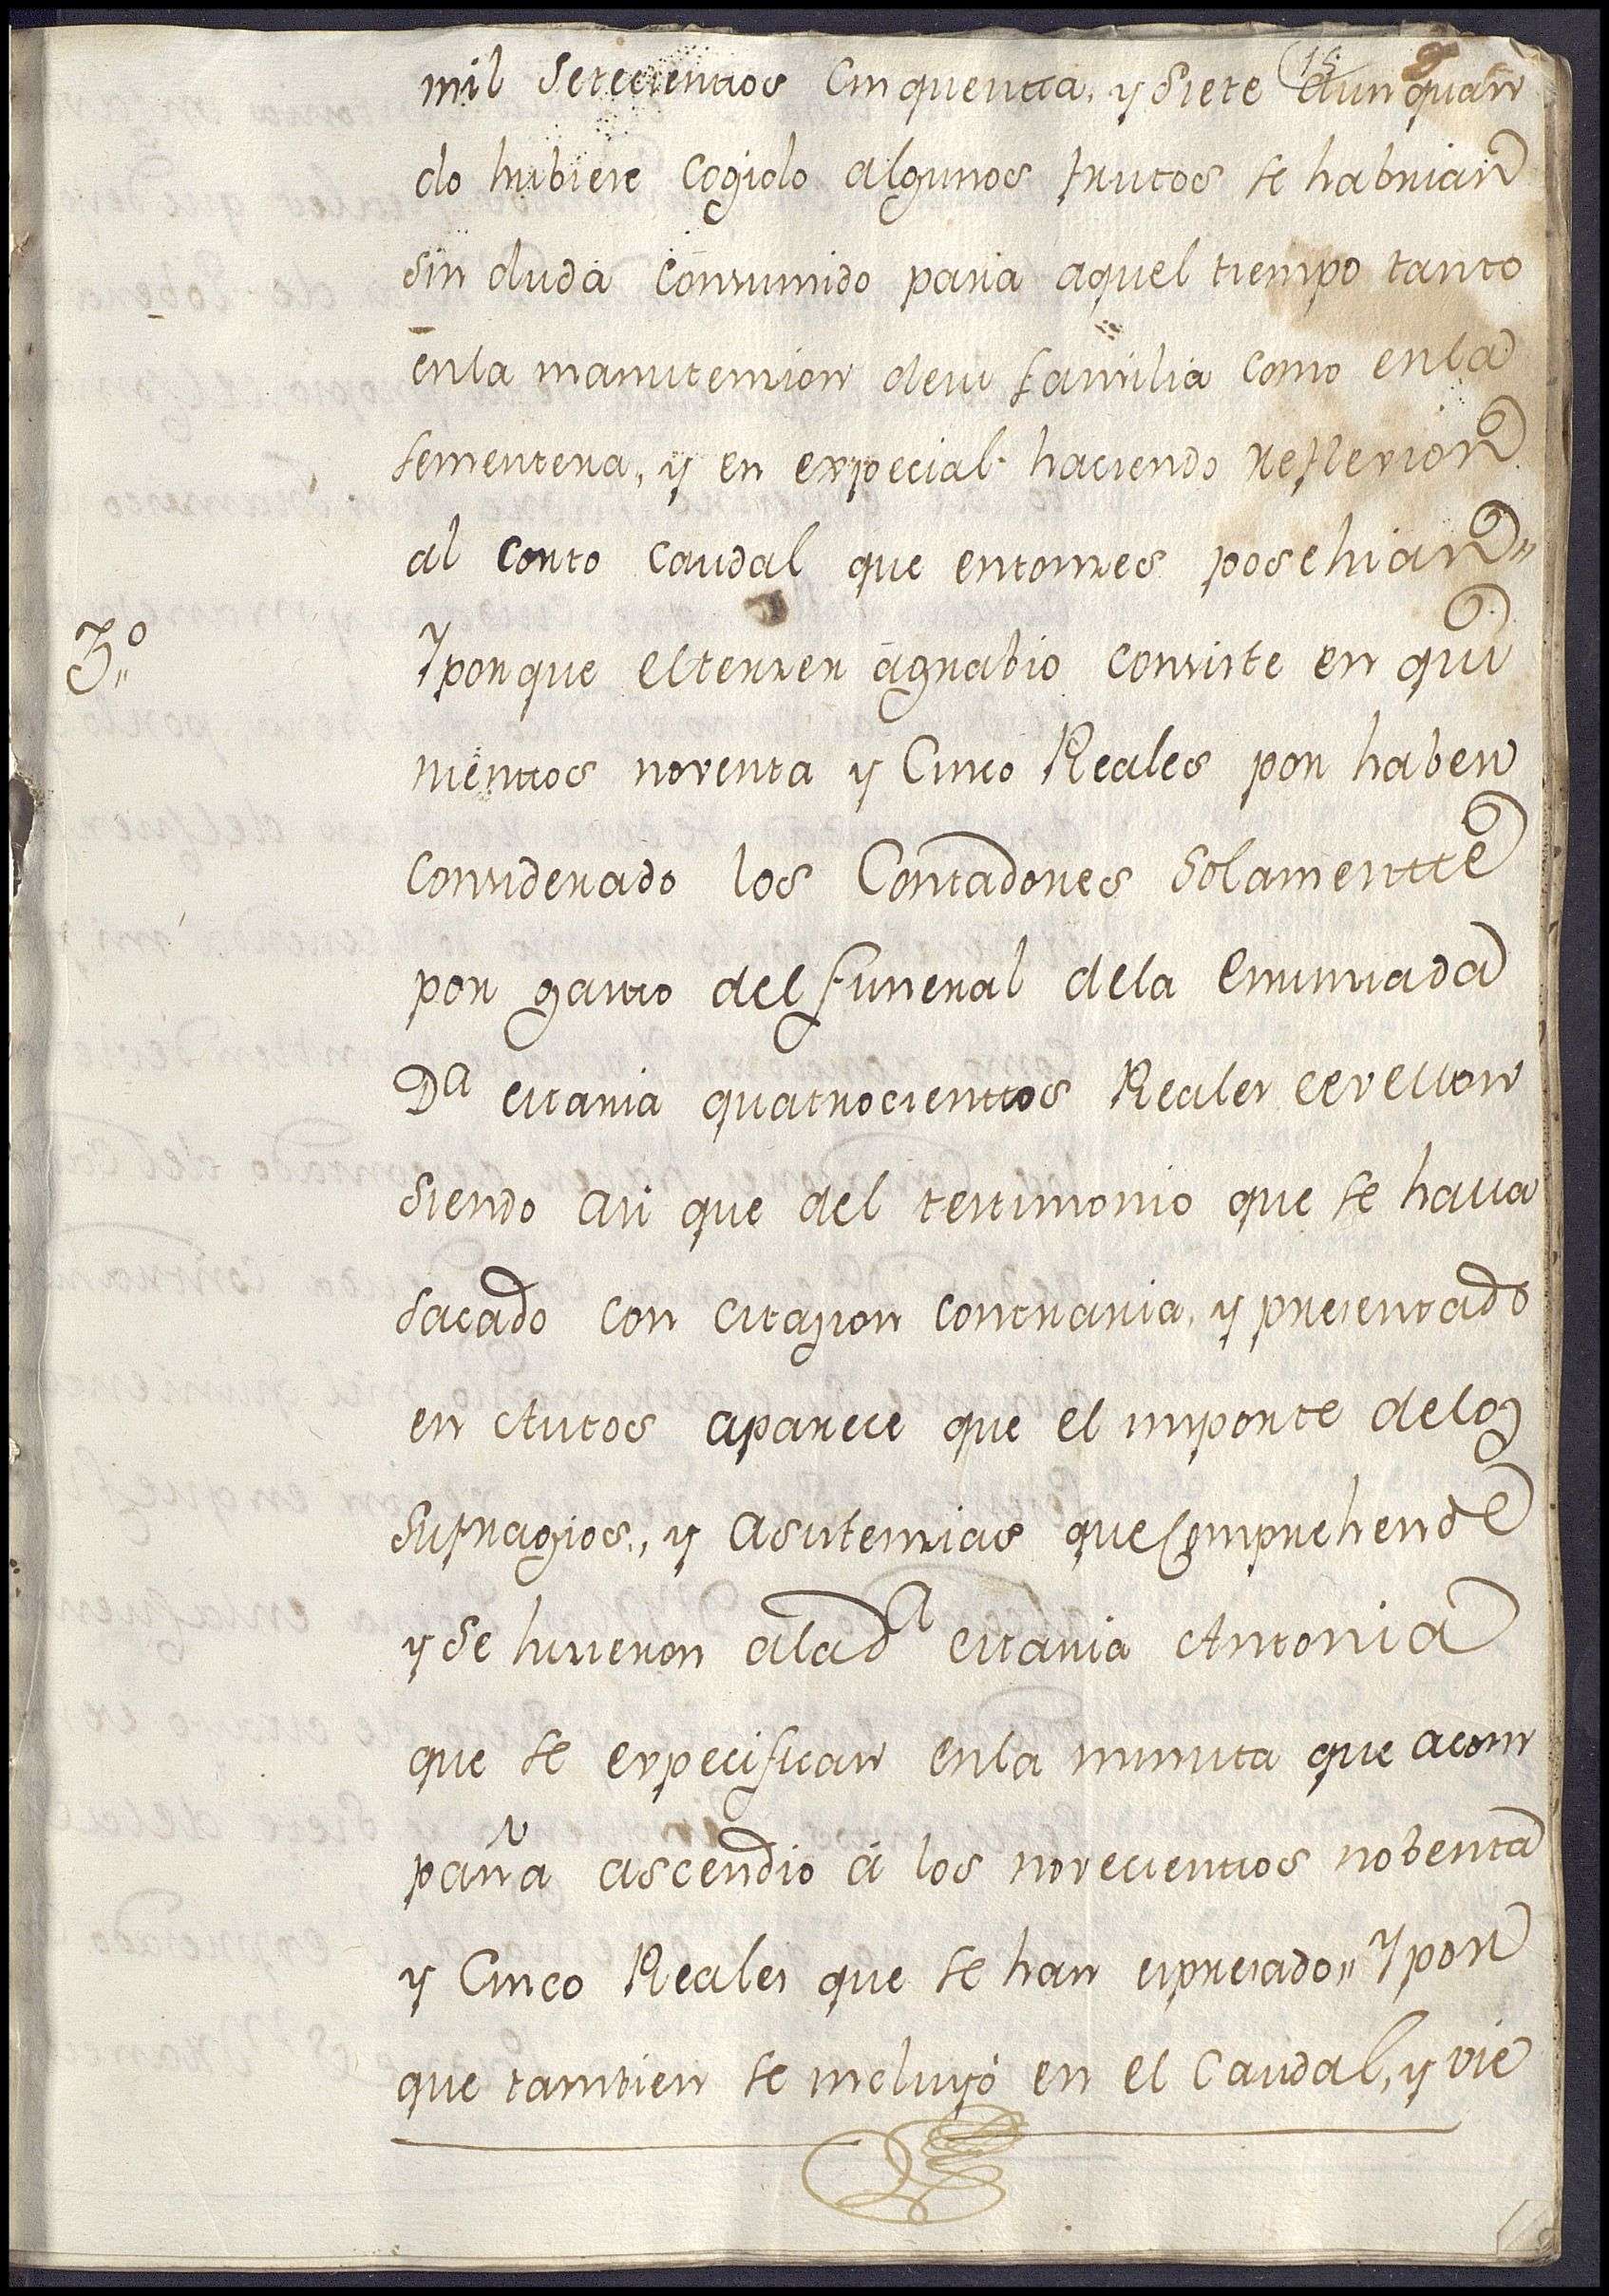 15
mil setecienttos Cinquentta, y siete aun quan
do hubiere cogido algunos frutos se habrian
sin duda consumido para aquel tiempo tanto
enla manutension desu familia como enla
sementera, y en expecial haciendo reflexion
al corto caudal que entonzes posehian,,
3.º
Y porque elterzer agrabio consiste en qui
nienttos noventa y Cinco Reales por haber
considerado los Contadores solamentte
por gastto del funeral dela enunciada
D.ª Maria quatrocienttos Reales de vellon
siendo asi que del testimonio que se halla
sacado con citazion contraria, y presentado
en Autos aparece que el importe delos
sufragios, y asistenzias que Comprehende
y se hizieron ala D.ª Maria Antonia
que se expecifican enla minuta que acom
paña ascendio á los novecienttos nobenta
y Cinco Reales que se han expresado,, Y por
que tambien se incluyó en el Caudal, y vie